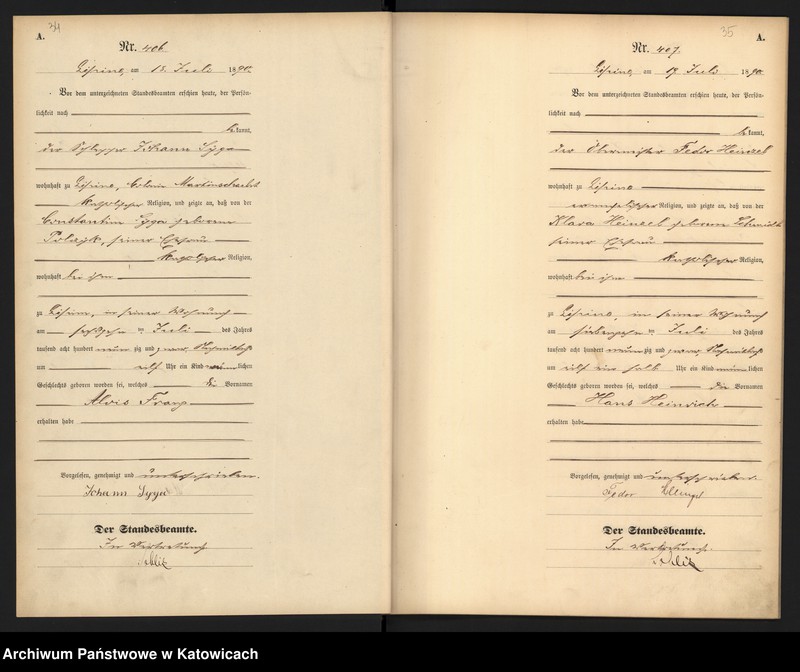 34
A.
Nr. 406.
18. Juli 1890.
Vor dem unterzeichneten Standesbeamten erschien heute, der Persön-
lichkeit nach
bekannt,
der Schlepper Johann Syga
wohnhaft zu
katholischer Religion, und zeigte an, daß von der
Constantine Syga geborenen
seiner Ehefrau
katholischer Religion,
wohnhaft bei ihm
in seiner Wohnung
am sechszehn ten Juli des Jahres
tausend acht hundert neunzig und zwar Nachmittags
um elf Uhr ein Kind männlichen
Geschlechts geboren worden sei, welches die Vornamen
Alois Franz
erhalten habe
Vorgelesen, genehmigt und unterschrieben.
Johann Syga
Der Standesbeamte.
In Vertretung
35
A.
Nr. 407.
17 Juli 1890.
Vor dem unterzeichneten Standesbeamten erschien heute, der Persön-
lichkeit nach
bekannt,
der Obermeister Fedor
wohnhaft zu
evangelischer Religion, und zeigte an, daß von der
Klara geborenen Schmidt
seiner Ehefrau
katholischer Religion,
wohnhaft bei ihm
zu in seiner Wohnung
am siebenzehn ten Juli des Jahres
tausend acht hundert neunzig und zwar
um ein halb Uhr ein Kind männlichen
Geschlechts geboren worden sei, welches die Vornamen
Hans Heinrich
erhalten habe
Vorgelesen, genehmigt und unterschrieben.
Fedor
Der Standesbeamte.
In Vertretung.
Archiwum Państwowe w Katowicach